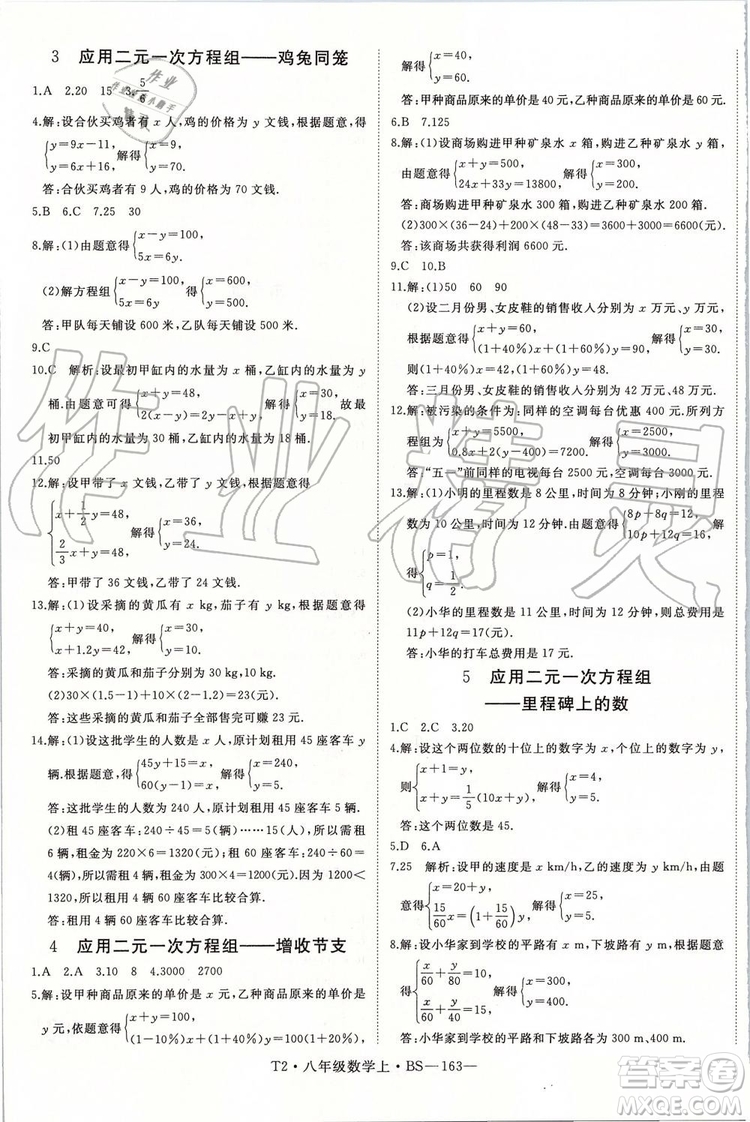 3 应用二元一次方程组——鸡兔同笼
1.A 2.20 15 3.5/6
4.解:设合伙买鸡者有 x 人,鸡的价格为 y 文钱,根据题意得
{y=9x-11, y=6x+16, 解得{x=9, y=70.
答:合伙买鸡者有 9 人,鸡的价格为 70 文钱.
5.B 6.C 7.25 30
8.解:(1)由题意得{x-y=100, 5x=6y.
(2)解方程组{x-y=100, 5x=6y 得{x=600, y=500.
答:甲队每天铺设 600 米,乙队每天铺设 500 米.
9.C
10.C 解析:设最初甲缸内的水量为 x 桶,乙缸内的水量为 y
桶.由题意得{x+y=48, 2(x-y)=2y-x+y, 解得{x=30, y=18. 故最
初甲缸内的水量为 30 桶,乙缸内的水量为 18 桶.
11.50
12.解:设甲带了 x 文钱,乙带了 y 文钱,根据题意得
{x+1/2y=48, 2/3x+y=48, 解得{x=36, y=24.
答:甲带了 36 文钱,乙带了 24 文钱.
13.解:(1)设采摘的黄瓜有 x kg,茄子有 y kg,根据题意得
{x+y=40, x+1.2y=42, 解得{x=30, y=10.
答:采摘的黄瓜和茄子分别有 30 kg、10 kg.
(2)30×(1.5-1)+10×(2-1.2)=23(元).
答:这些采摘的黄瓜和茄子全部售出可赚 23 元.
14.解:(1)设这批学生的人数是 x 人,原计划租用 y 辆 45 座
客车.根据题意得{45y+15=x, 60(y-1)=x, 解得{x=240, y=5.
答:这批学生的人数为 240 人,原计划租用 45 座客车 5 辆.
(2)租 45 座客车:240÷45=5(辆)……15(人),所以需租
6 辆,租金为 220×6=1320(元);租 60 座客车:240÷60=
4(辆),所以需租 4 辆,租金为 300×4=1200(元).1200<
1320,租用 4 辆 60 座客车比较合算.
答:租用 4 辆 60 座客车比较合算.
4 应用二元一次方程组——增收节支
1.A 2.A 3.10 8 4.3000 2700
5.解:设甲种商品原来的单价是 x 元,乙种商品原来的单价是
y 元,依题意得{x+y=100, (1-10%)x+(1+40%)y=100(1+20%),
解得{x=40, y=60.
答:甲种商品原来的单价是 40 元,乙种商品原来的单价是 60 元.
6.B 7.125
8.解:(1)设商场购进甲种矿泉水 x 箱,购进乙种矿泉水 y 箱,
由题意得{x+y=500, 24x+33y=13800, 解得{x=300, y=200.
答:商场购进甲种矿泉水 300 箱,购进乙种矿泉水 200 箱.
(2)300×(36-24)+200×(48-33)=3600+3000=6600(元).
答:该商场共获得利润 6600 元.
9.C 10.B
11.解:(1)50 60 90
(2)设二月份男、女皮鞋的销售收入分别为 x 万元、y 万元,
根据题意得{x+y=60, (1+40%)x+(1+60%)y=90, 解得{x=30, y=30.
则(1+40%)x=42,(1+60%)y=48.
答:三月份男、女皮鞋的销售收入分别为 42 万元、48 万元.
12.解:被污染的条件为:同样的空调每台优惠 400 元.所列方
程组为{x+y=5500, 0.8x+2(y-400)=7200, 解得{x=2500, y=3000.
答:“五一”前同样的电视每台 2500 元,空调每台 3000 元.
13.解:(1)小明的里程数是 8 公里,时间为 8 分钟;小刚的里程
数为 10 公里,时间为 12 分钟.由题意得{8p+8q=12, 10p+12q=16, 解
得{p=1, q=1/2.
(2)小华的里程数是 11 公里,时间为 12 分钟,则总费用是
11p+12q=17(元).
答:小华的打车总费用是 17 元.
5 应用二元一次方程组
——里程碑上的数
1.C 2.C 3.20
4.解:设这个两位数的十位上的数字为 x,个位上的数字为 y,
则{x=y-1, x+y=1/5(10x+y), 解得{x=4, y=5.
答:这个两位数是 45.
5.D 6.A
7.25 解析:设甲的速度是 x km/h,乙的速度为 y km/h,由题
意得{x=20+y, 15/60x=(15/60+60/60)y, 解得{x=25, y=5.
8.解:设小华家到学校的平路有 x m,下坡路有 y m,根据题意
得{x/60+y/80=10, x/60+y/40=15, 解得{x=300, y=400.
答:小华家到学校的平路和下坡路各为 300 m、400 m.
T2·八年级数学上·BS—163—
作业精灵
答案圈